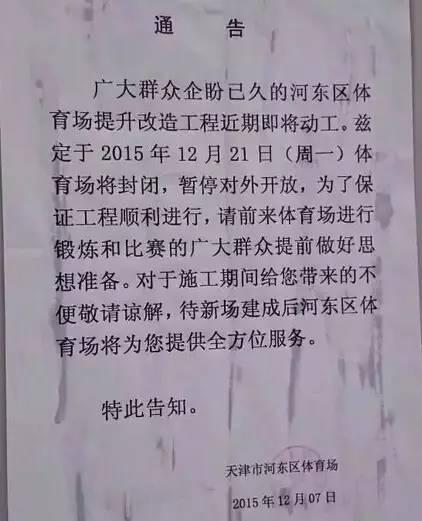 通 告
广大群众企盼已久的河东区体
育场提升改造工程近期即将动工。兹
定于 2015 年 12 月 21 日（周一）体
育场将封闭，暂停对外开放，为了保
证工程顺利进行，请前来体育场进行
锻炼和比赛的广大群众提前做好思
想准备。对于施工期间给您带来的不
便敬请谅解，待新场建成后河东区体
育场将为您提供全方位服务。
特此告知。
天津市河东区体育场
2015 年 12 月 07 日